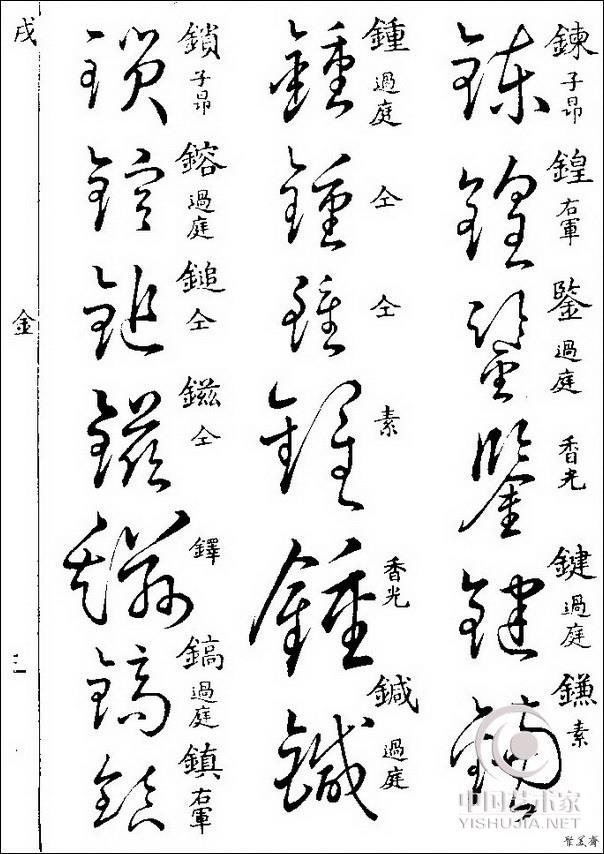 鍊 子昂
鍠 右軍
鍳 過庭
香光
鍵 過庭
鎌 素
鍾 過庭
仝
仝
素
香光
鍼 過庭
鎖 子昂
鎔 過庭
鎚 仝
鎡 仝
鐸
鎬 過庭
鎮 右軍
戌
金
三
中国艺术家
YISHUJIA.NET